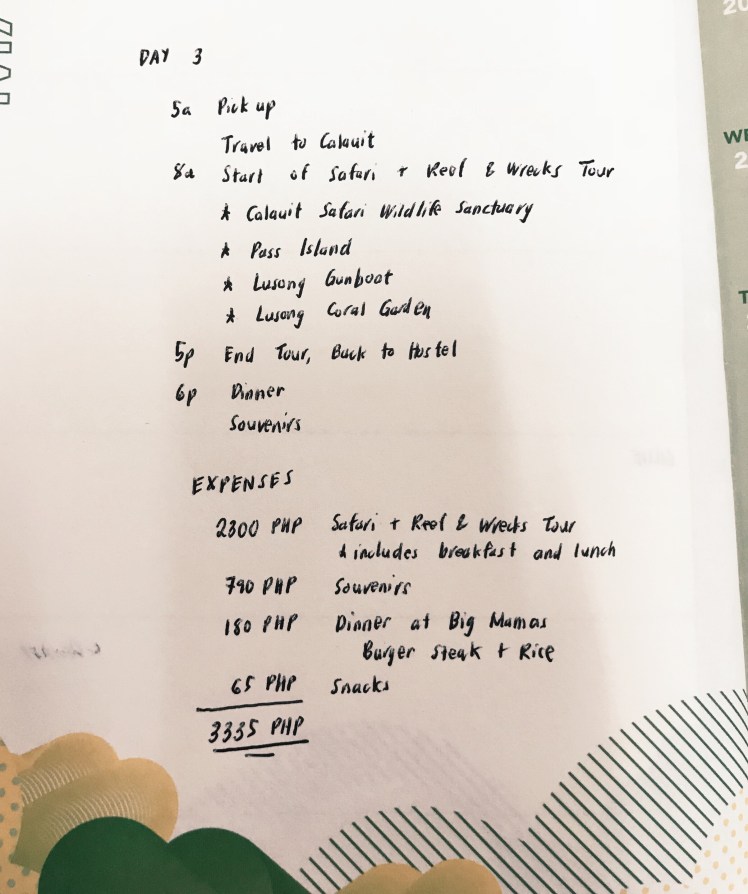 DAY 3
5a Pick up
Travel to Calauit
8a Start of Safari + Reef & Wrecks Tour
* Calauit Safari Wildlife Sanctuary
* Pass Island
* Lusong Gunboat
* Lusong Coral Garden
5p End Tour, Back to Hostel
6p Dinner
Souvenirs
EXPENSES
2300 PHP Safari + Reef & Wrecks Tour
* includes breakfast and lunch
790 PHP Souvenirs
180 PHP Dinner at Big Mamas
Burger Steak + Rice
65 PHP Snacks
3335 PHP
20
WE
2
T